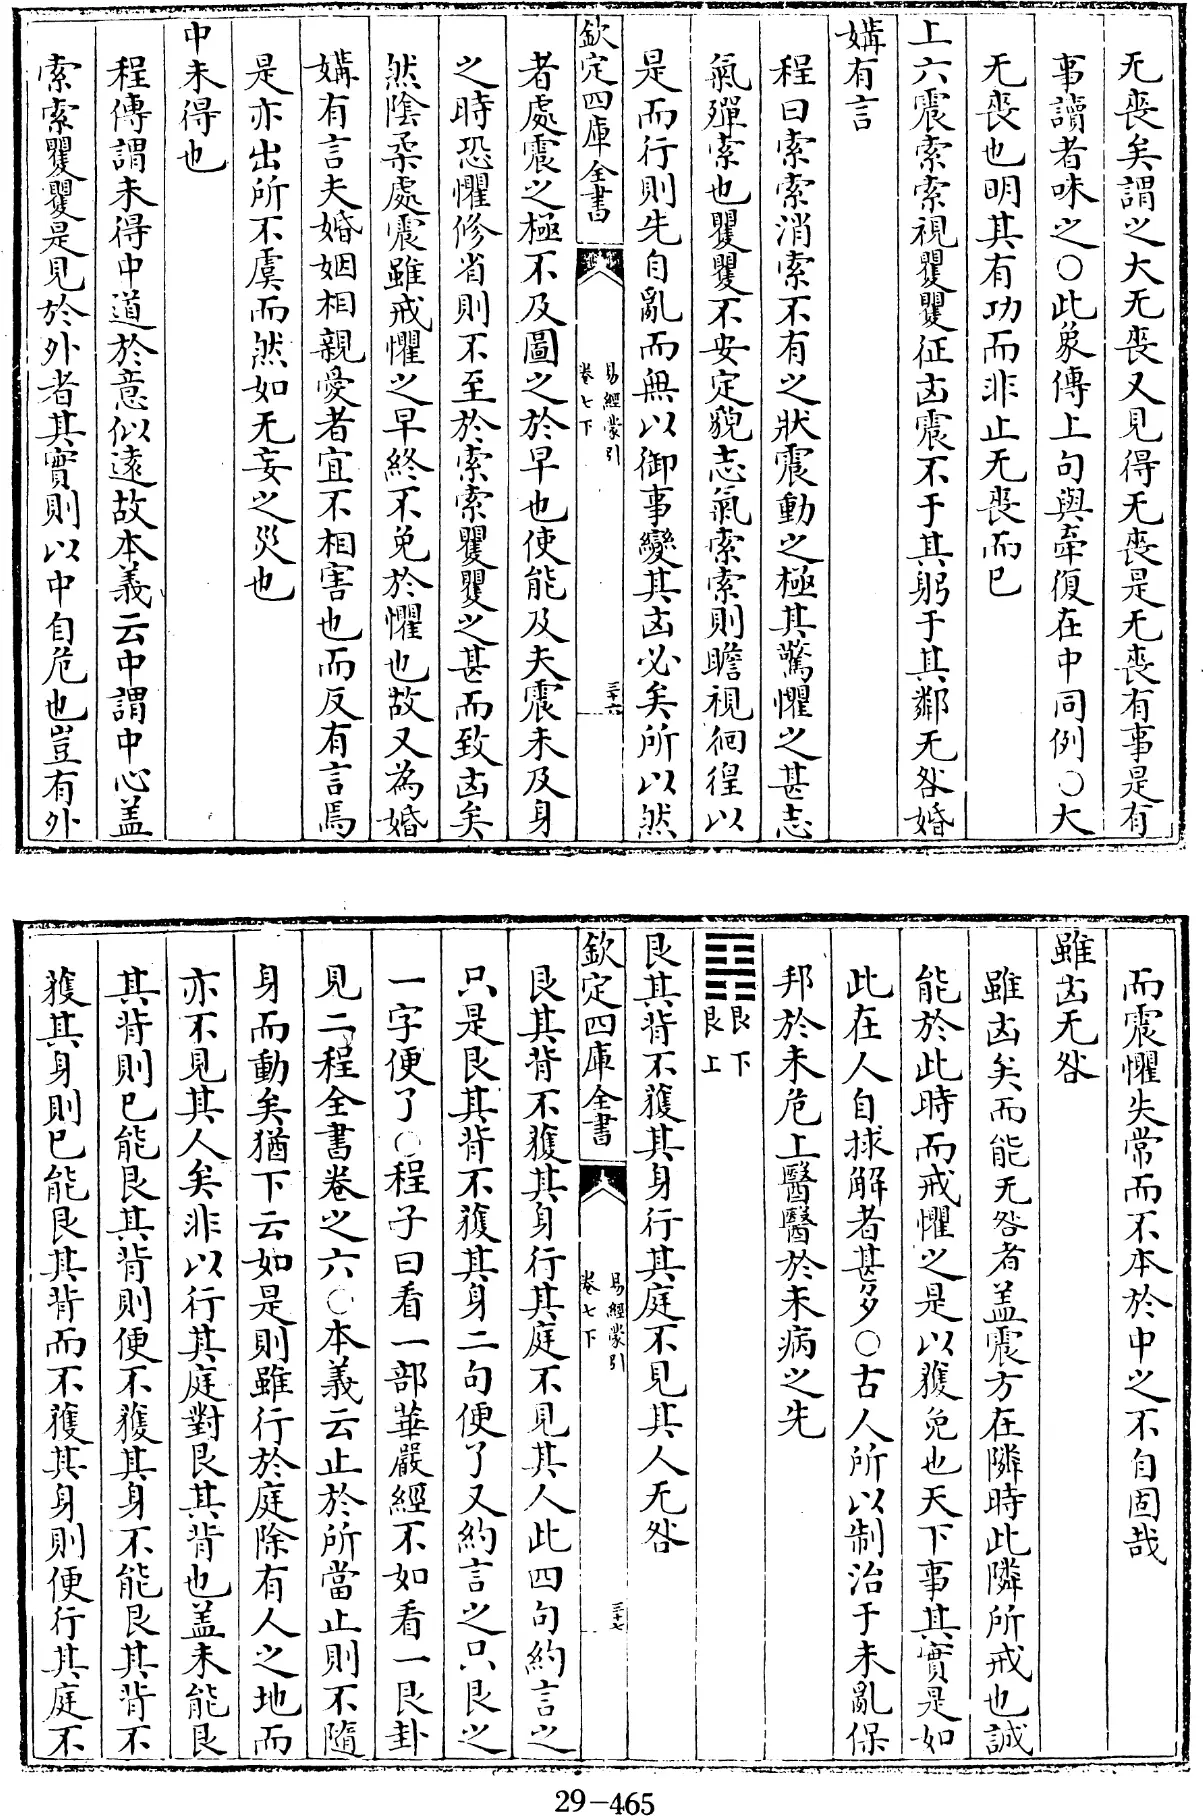 无喪矣謂之大无喪又見得无喪是无喪有事是有
事讀者味之○此象傳上句與牽復在中同例○大
无喪也明其有功而非止无喪而已
上六震索索視矍矍征凶震不于其躬于其鄰无咎婚
媾有言
程曰索索消索不有之狀震動之極其驚懼之甚志
氣殫索也矍矍不安定貌志氣索索則瞻視徊徨以
是而行則先自亂而無以御事變其凶必矣所以然
欽定四庫全書
易經蒙引
卷七下
三十六
者處震之極不及圖之於早也使能及夫震未及身
之時恐懼修省則不至於索索矍矍之甚而致凶矣
然陰柔處震雖戒懼之早終不免於懼也故又為婚
媾有言夫婚姻相親愛者宜不相害也而反有言焉
是亦出所不虞而然如无妄之災也
中未得也
程傳謂未得中道於意似遠故本義云中謂中心盖
索索矍矍是見於外者其實則以中自危也豈有外
而震懼失常而不本於中之不自固哉
雖凶无咎
雖凶矣而能无咎者盖震方在隣時此隣所戒也誠
能於此時而戒懼之是以獲免也天下事其實是如
此在人自求解者甚多○古人所以制治于未亂保
邦於未危上醫醫於未病之先
䷳艮下
艮上
艮其背不獲其身行其庭不見其人无咎
欽定四庫全書
易經蒙引
卷七下
三十七
艮其背不獲其身行其庭不見其人此四句約言之
只是艮其背不獲其身二句便了又約言之只艮之
一字便了○程子曰看一部華嚴經不如看一艮卦
見二程全書卷之六○本義云止於所當止則不隨
身而動矣猶下云如是則雖行於庭除有人之地而
亦不見其人矣非以行其庭對艮其背也盖未能艮
其背則已能艮其背則便不獲其身不能艮其背不
獲其身則已能艮其背而不獲其身則便行其庭不
29-465